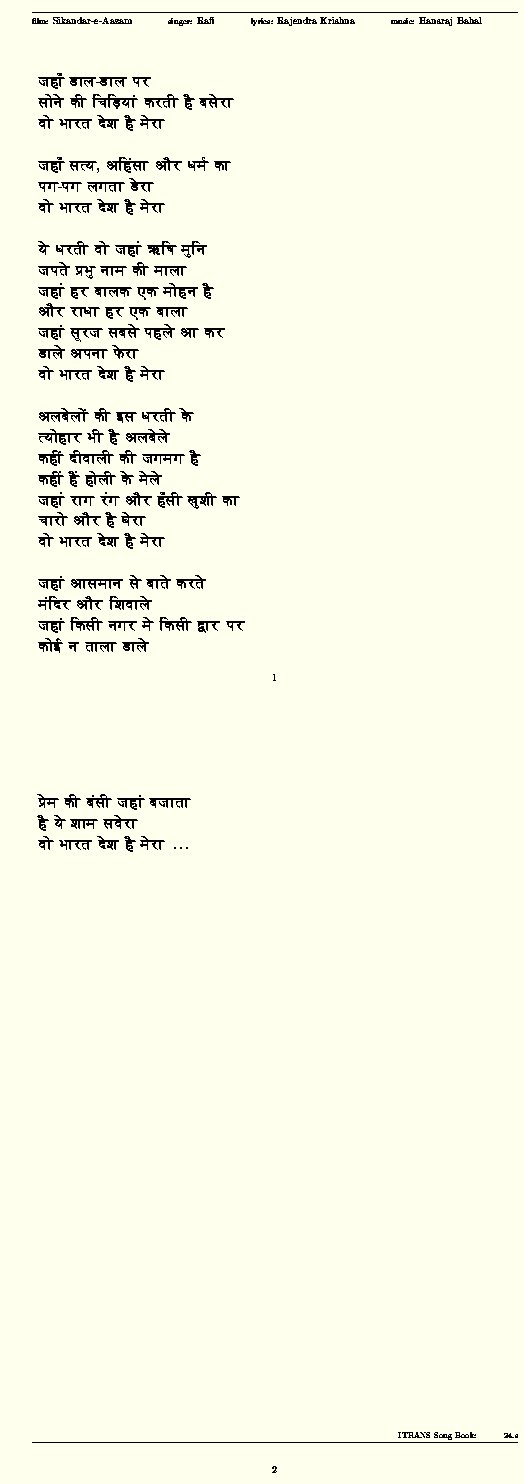 film: Sikandar-e-Aazam singer: Rafi lyrics: Rajendra Krishna music: Hansraj Bahal
जहाँ डाल-डाल पर
सोने की चिड़ियां करती है बसेरा
वो भारत देश है मेरा
जहाँ सत्य, अहिंसा और धर्म का
पग-पग लगता डेरा
वो भारत देश है मेरा
ये धरती वो जहां ऋषि मुनि
जपते प्रभु नाम की माला
जहां हर बालक एक मोहन है
और राधा हर एक बाला
जहां सूरज सबसे पहले आ कर
डाले अपना फेरा
वो भारत देश है मेरा
अलबेलों की इस धरती के
त्योहार भी है अलबेले
कहीं दीवाली की जगमग है
कहीं हैं होली के मेले
जहां राग रंग और हँसी खुशी का
चारो और है घेरा
वो भारत देश है मेरा
जहां आसमान से बाते करते
मंदिर और शिवाले
जहां किसी नगर मे किसी द्वार पर
कोई न ताला डाले
1
प्रेम की बंसी जहां बजाता
है ये शाम सवेरा
वो भारत देश है मेरा ...
ITRANS Song Book
2